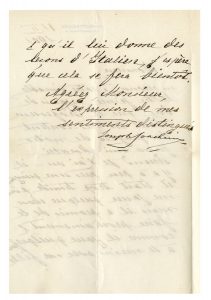 & qu'il lui donne des
leçons d'Italien. J'espère
que cela se fera bientôt.
Agréez Monsieur,
l'expression de mes
sentiments distingués
Joseph Joachim